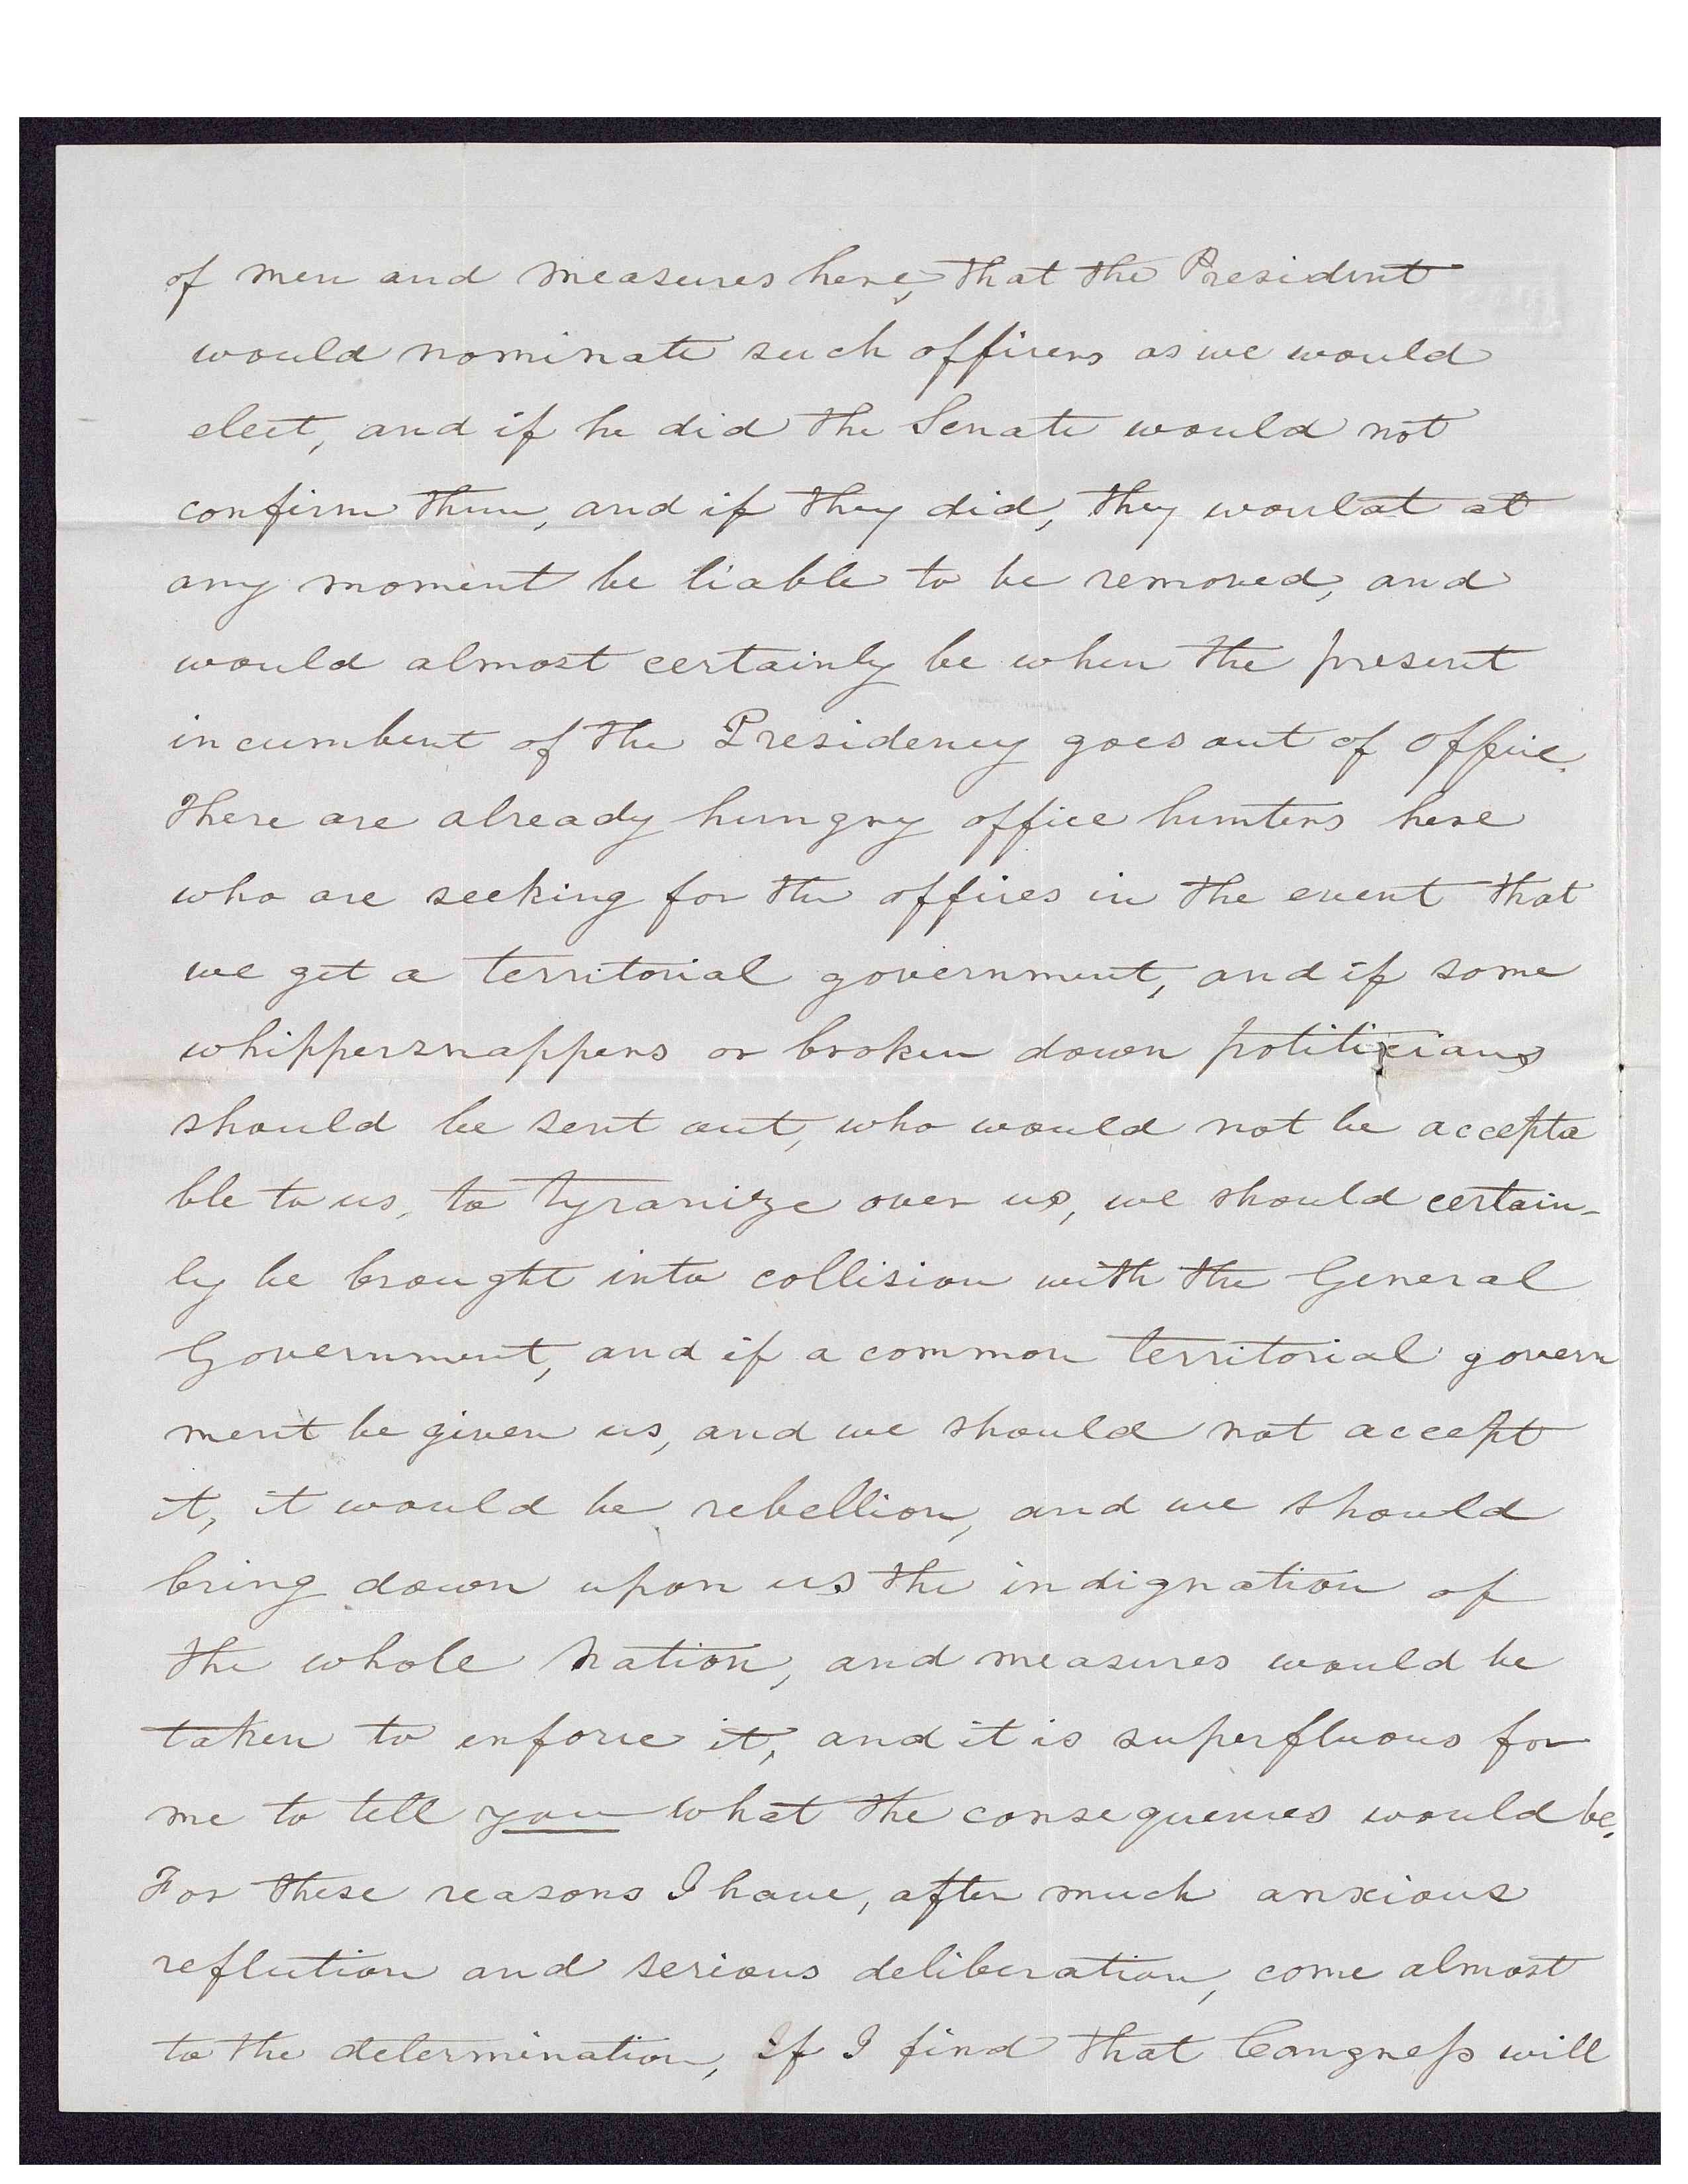 of men and measures here, that the President
would nominate such officers as we would
elect, and if he did the Senate would not
confirm them, and if they did, they would at
any moment be liable to be removed, and
would almost certainly be when the present
incumbent of the Presidency goes out of office.
There are already hungry office hunters here
who are seeking for the offices in the event that
we get a territorial government, and if some
whippersnappers or broken down politicians
should be sent out, who would not be accepta
ble to us, to tyranize over us, we should certain-
ly be brought into collision with the General
Government, and if a common territorial govern
ment be given us, and we should not accept
it, it would be rebellion, and we should
bring down upon us the indignation of
the whole nation, and measures would be
taken to enforce it, and it is superfluous for
me to tell you what the consequences would be.
For these reasons I have, after much anxious
reflection and serious deliberation, come almost
to the determination, If I find that Congress will